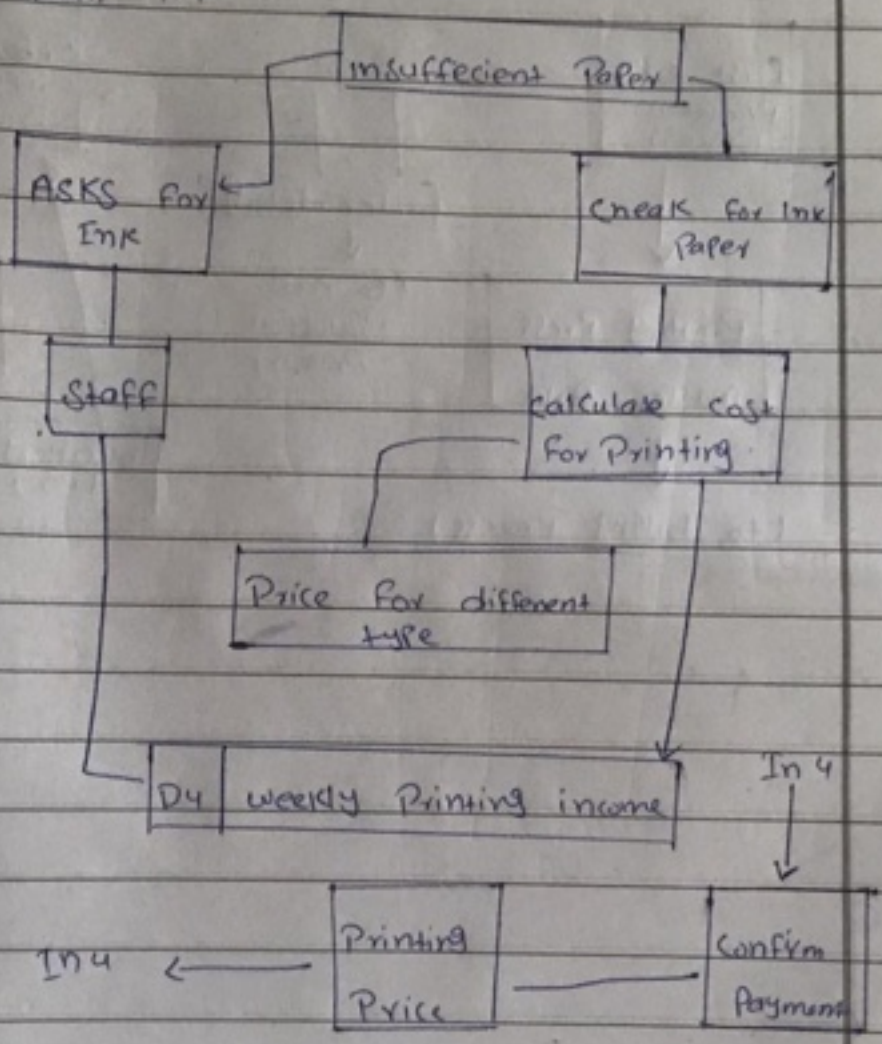 insuffecient Paper
ASKS For
Ink
Cheak for Ink
Paper
Staff
Calculate Cost
for Printing
Price for different
type
D4 weekly Printing income
In 4
Printing
Price
In 4
Confirm
Payment